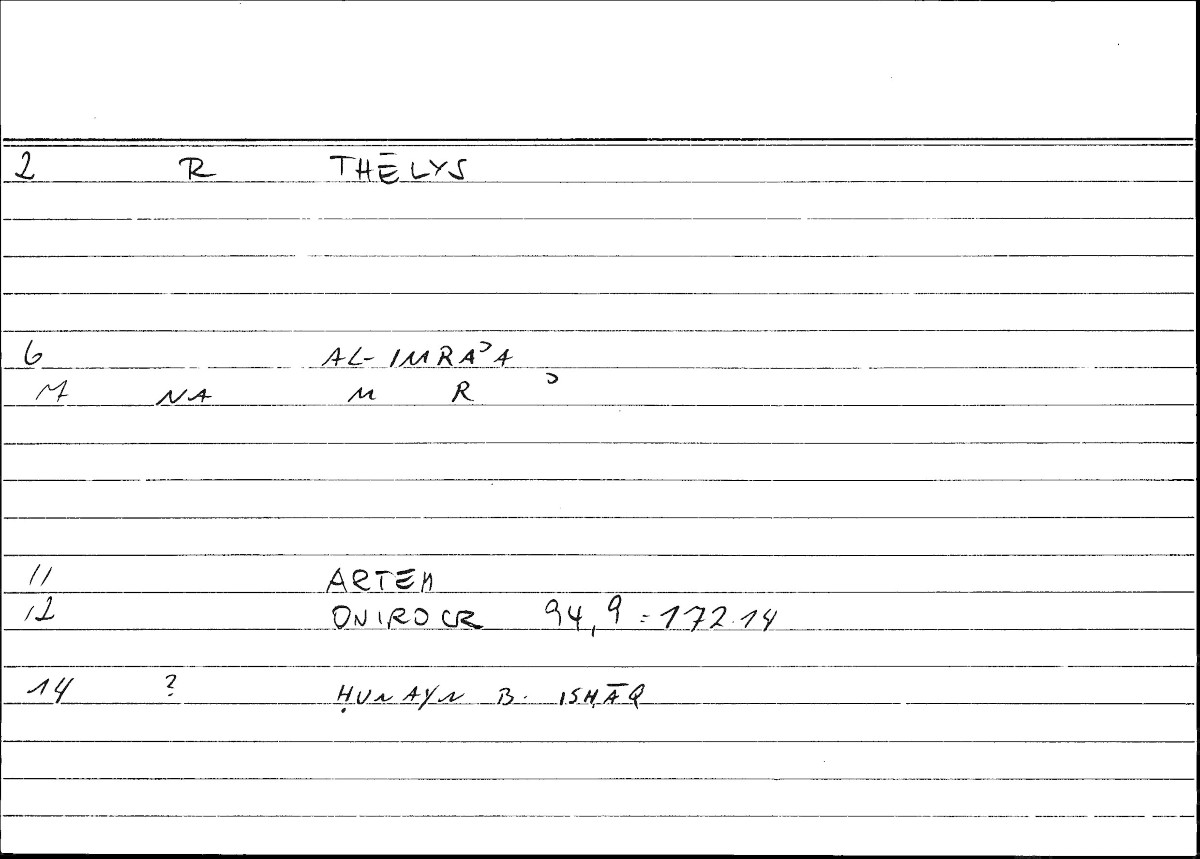 2 R THĒLYS
6 AL-IMRAʾA
7 NA M R ʾ
11 ARTEM
12 ONIROCR 94,9 = 172.14
14 ? ḤUNAYN B. ISḤĀQ